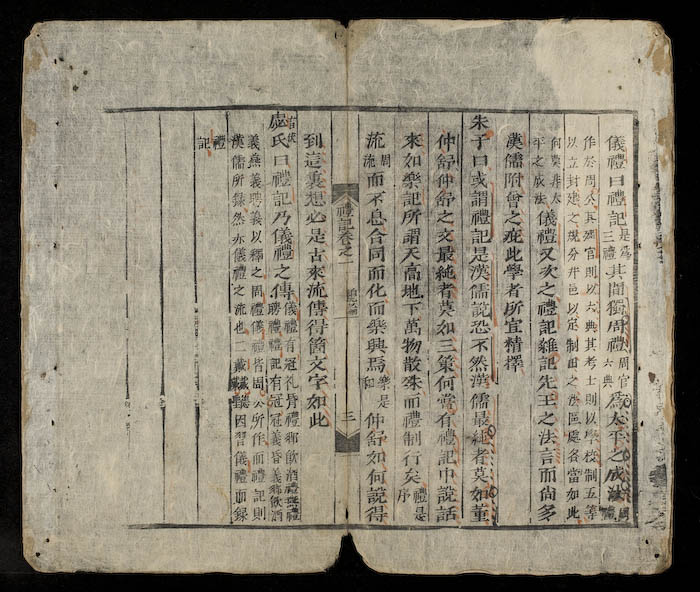 儀禮曰禮記是為三禮其間獨周禮周官六典為太平之成法周禮
作於周公其殫官則以六典其考士則以學校制五等
以立封建之規分井邑以定制田之法區處各當如此
何莫非太平之成法儀禮又次之禮記雜記先王之法言而尚多
漢儒附會之疵此學者所宜精擇
朱子曰或謂禮記是漢儒說恐不然漢儒最純者莫如董
仲舒仲舒之文最純者莫如三策何嘗有禮記中說話
來如樂記所謂天高地下萬物散殊而禮制行矣禮是序
流周流而不息合同而化而樂興焉樂是和仲舒如何說得
到這裏想必是古來流傳得箇文字如此
禮記卷之一
三
盧氏曰禮記乃儀禮之傳儀禮有冠礼昏禮鄉飲酒禮燕禮聘禮禮記有冠冠義昏義鄉飲酒
義燕義聘義以釋之周禮儀禮皆周公所作而禮記則
漢儒所錄然亦儀禮之流也二戴因習儀禮而錄
禮記